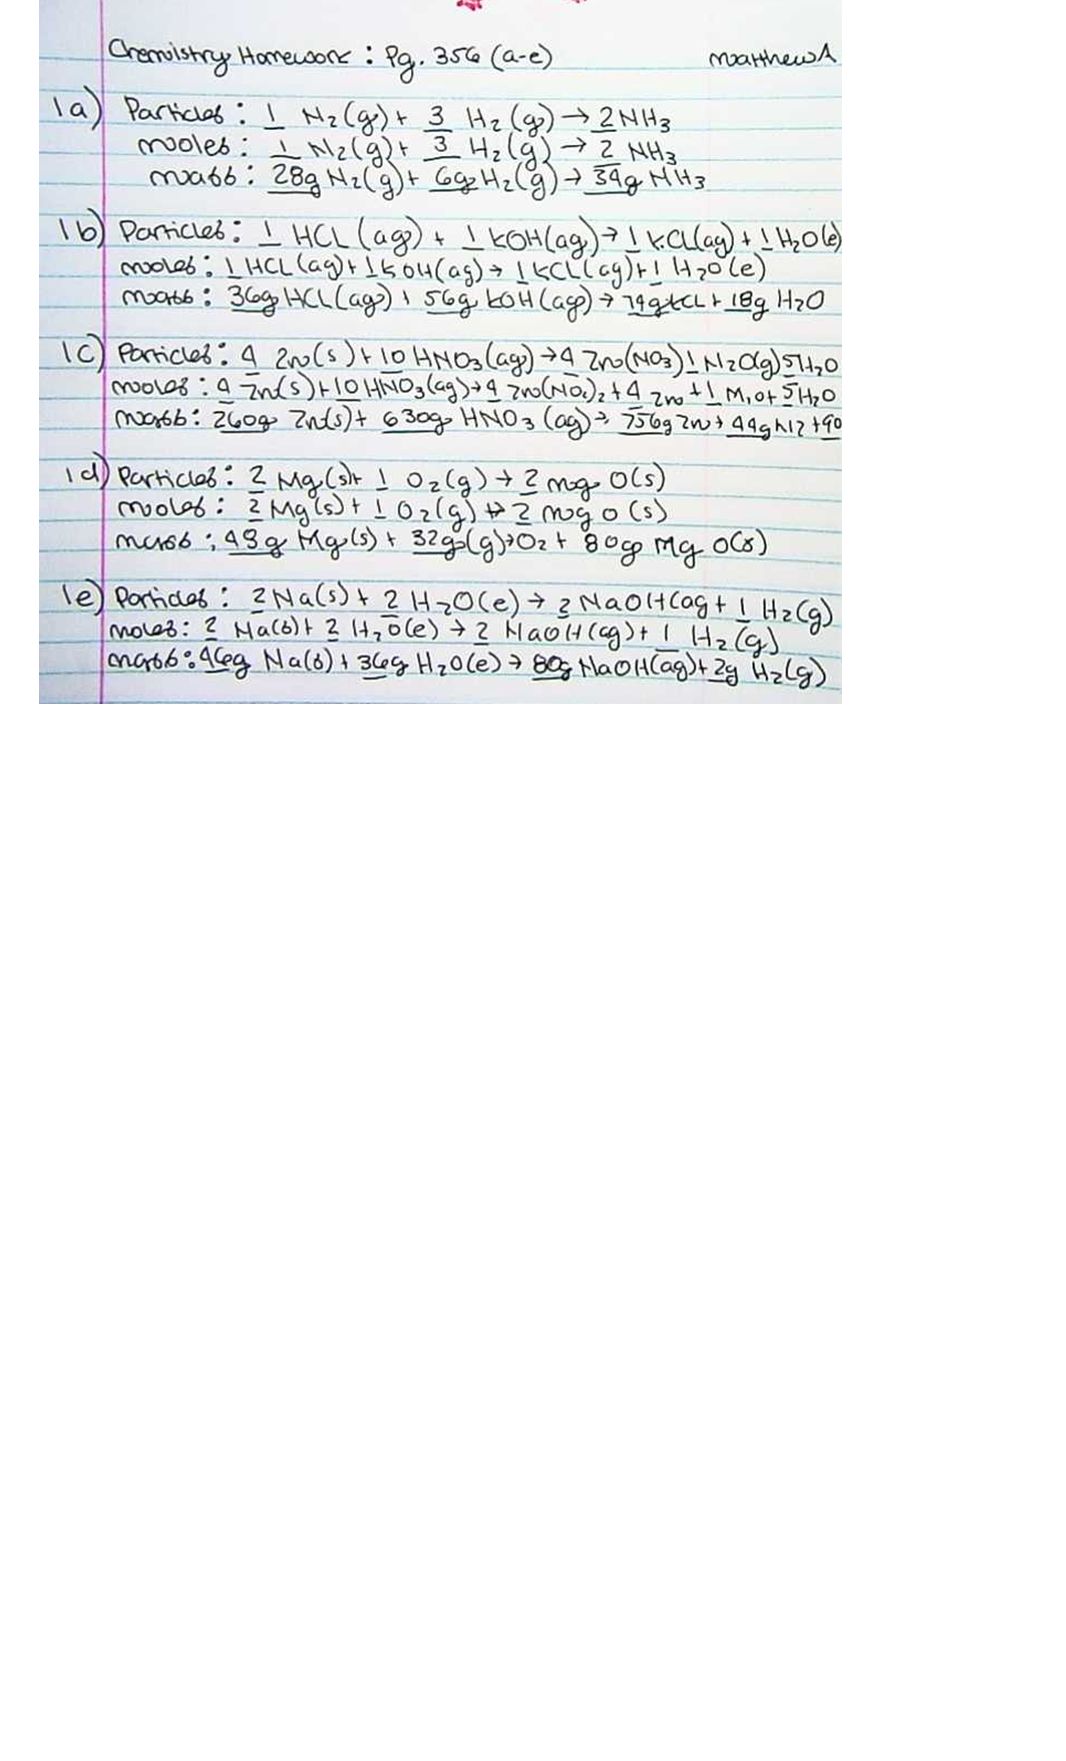 Chemistry Homework : Pg. 356 (a-e) Matthew A
1a) Particles : 1 N2(g) + 3 H2(g) → 2NH3
moles : 1 N2(g) + 3 H2(g) → 2 NH3
mass : 28g N2(g) + 6g H2(g) → 34g NH3
1b) Particles : 1 HCL (aq) + 1 KOH(aq) → 1 KCl(aq) + 1 H2O(l)
moles : 1 HCL (aq) + 1 KOH(aq) → 1 KCL(aq) + 1 H2O(l)
mass : 36g HCL(aq) + 56g KOH(aq) → 74g KCL + 18g H2O
1c) Particles : 4 Zn(s) + 10 HNO3(aq) → 4 Zn(NO3) 1 N2O(g) 5H2O
moles : 4 Zn(s) + 10 HNO3(aq) → 4 Zn(NO3)2 + 4 Zn + 1 + 5H2O
mass : 260g Zn(s) + 630g HNO3 (aq) → 756g Zn + 44g + 90
1d) Particles : 2 Mg(s) + 1 O2(g) → 2 mg O(s)
moles : 2 Mg(s) + 1 O2(g) → 2 mg O (s)
mass : 48g Mg(s) + 32g (g) → O2 + 80g Mg O(s)
1e) Particles : 2 Na(s) + 2 H2O(l) → 2 NaOH(aq + 1 H2(g)
moles : 2 Na(s) + 2 H2O(l) → 2 NaOH(aq) + 1 H2(g)
mass : 46g Na(s) + 36g H2O(l) → 80g NaOH(aq) + 2g H2(g)